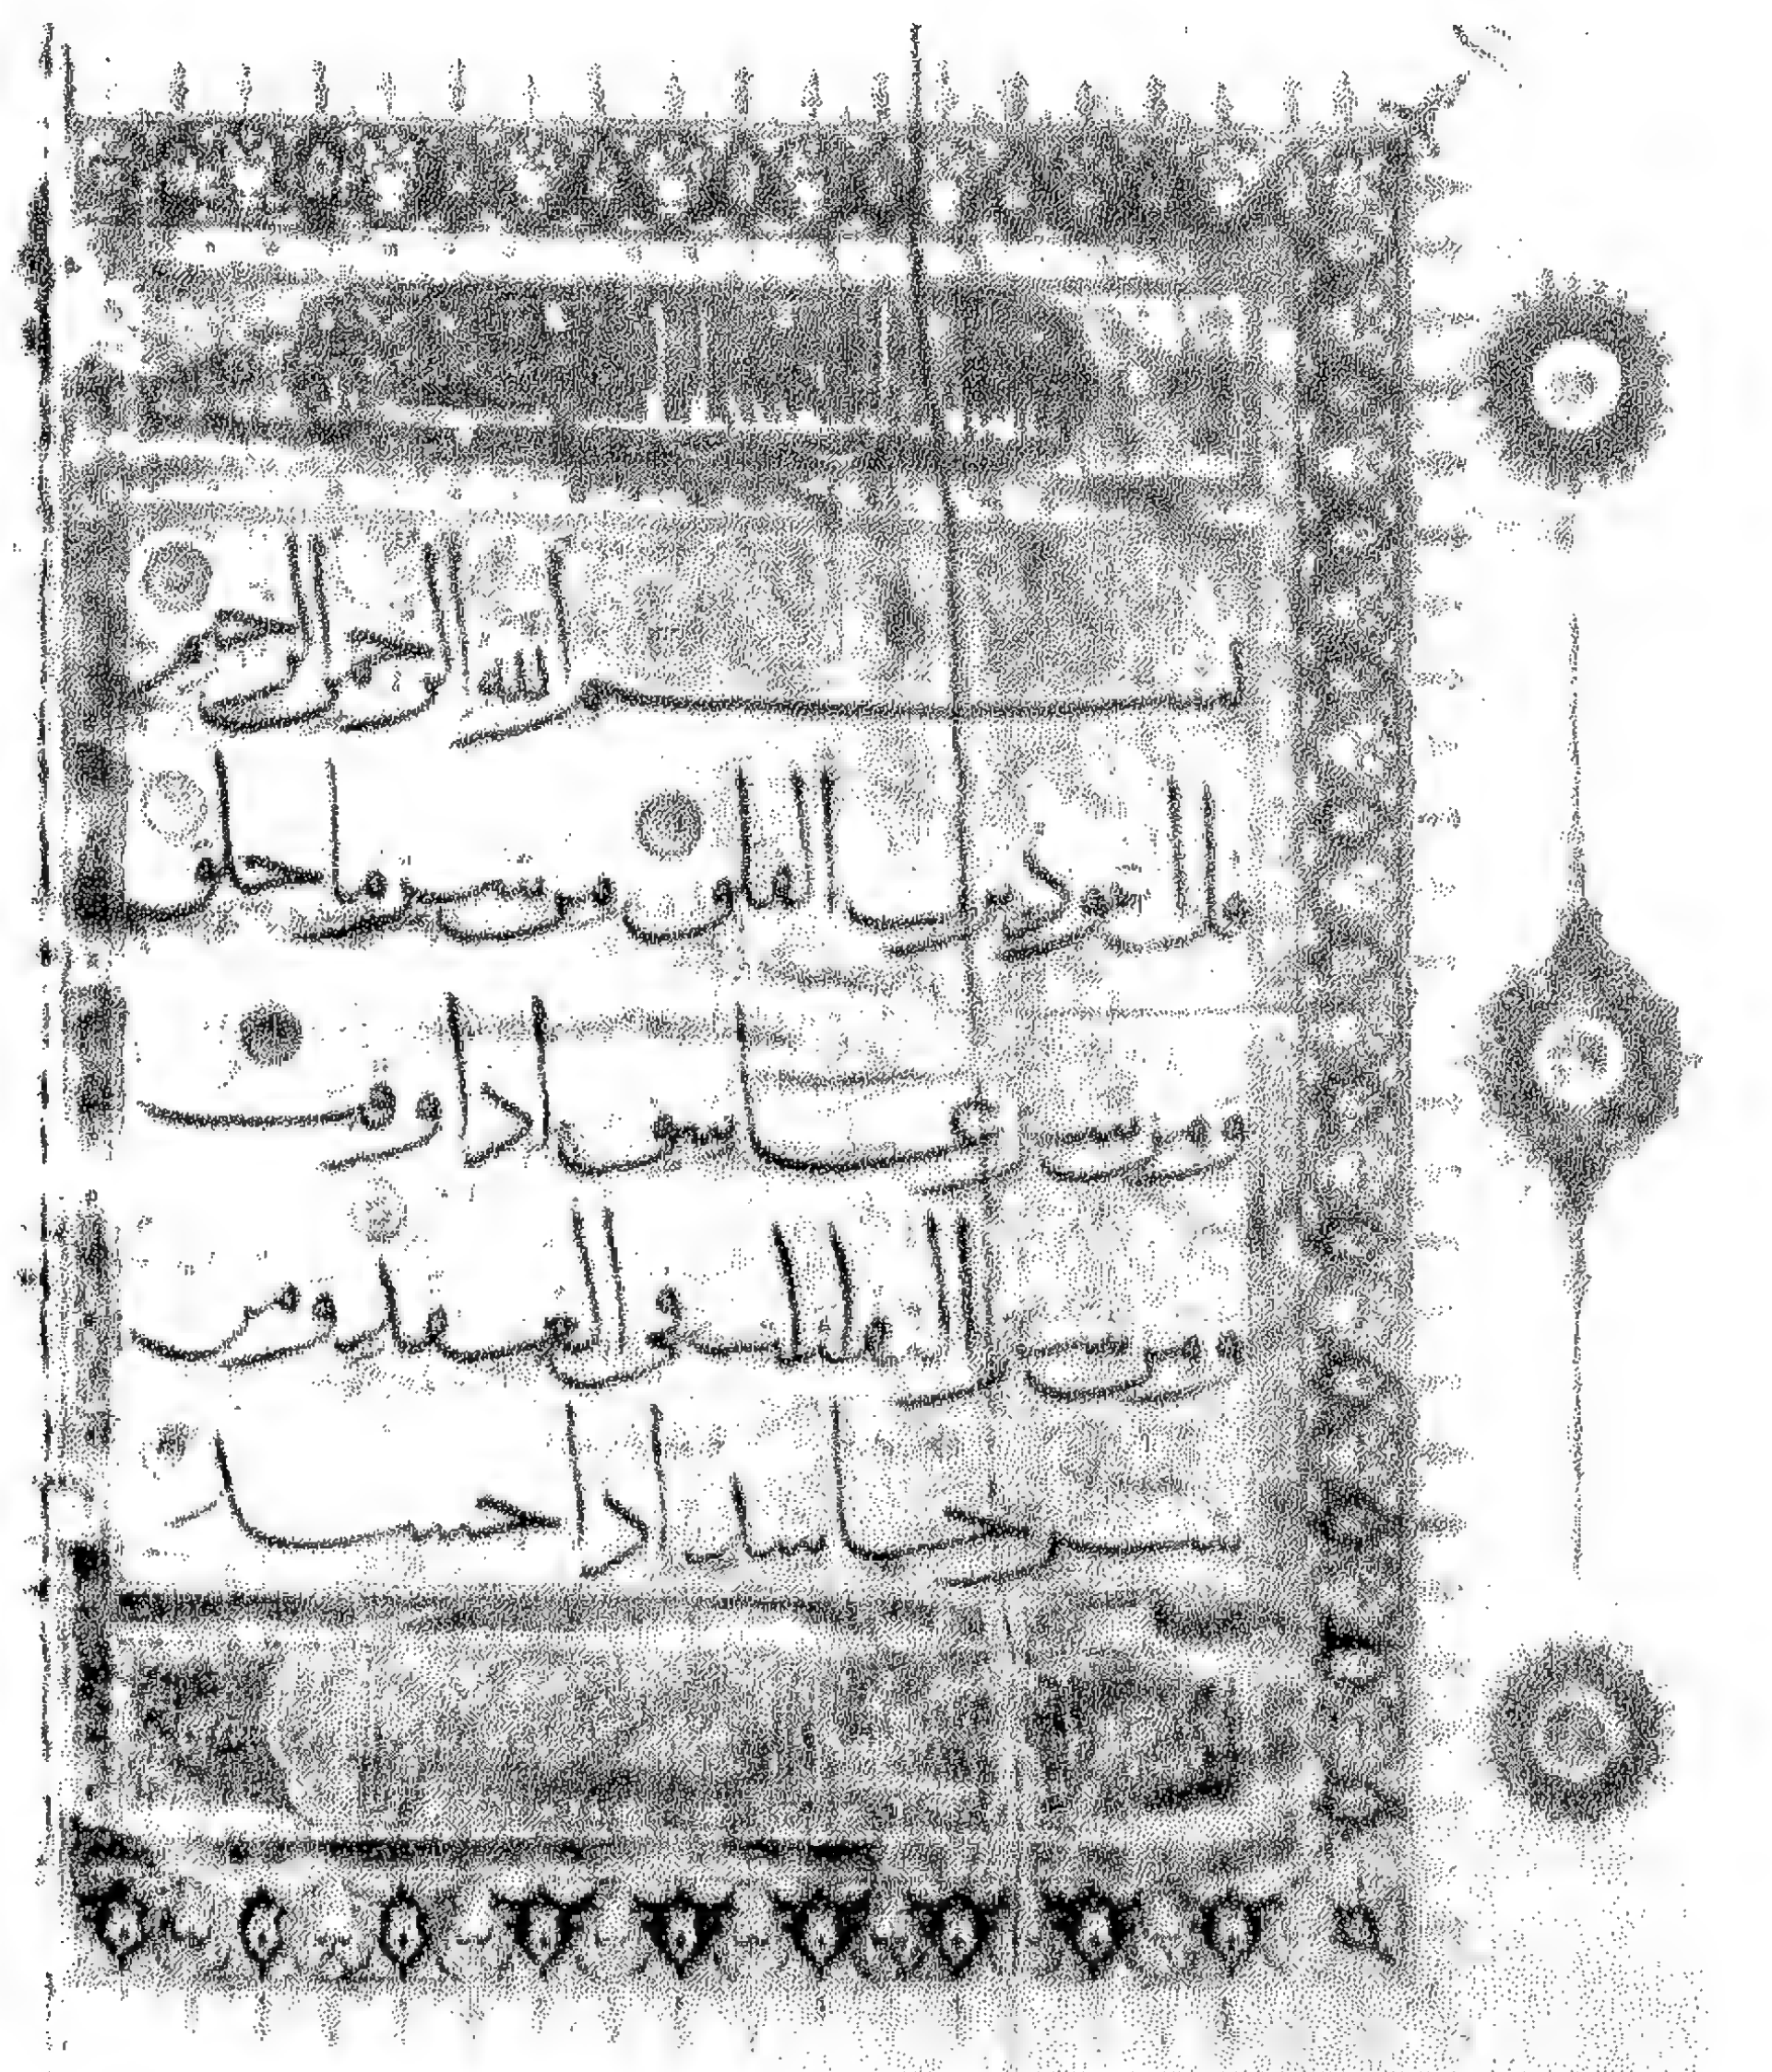 بسم الله الرحمن الرحيم
قل اعوذ برب الفلق من شر ما خلق
ومن شر غاسق اذا وقب
ومن شر النفاثات في العقد ومن
شر حاسد اذا حسد